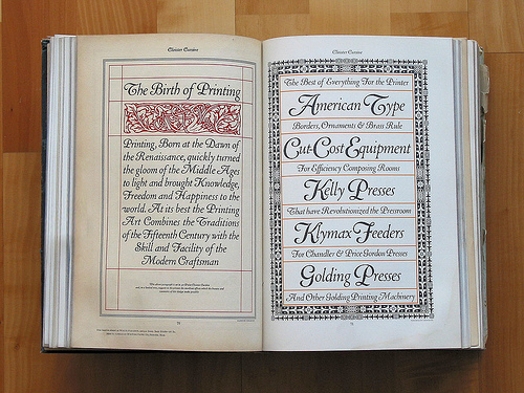 Cloister Cursive
The Birth of Printing
Printing, Born at the Dawn of
the Renaissance, quickly turned
the gloom of the Middle Ages
to light and brought Knowledge,
Freedom and Happiness to the
world. At its best the Printing
Art Combines the Traditions
of the Fifteenth Century with the
Skill and Facility of the
Modern Craftsman
Cloister Cursive
The Best of Everything For the Printer
American Type
Borders, Ornaments & Brass Rule
Cut-Cost Equipment
For Efficiency Composing Rooms
Kelly Presses
That have Revolutionized the Pressroom
Klymax Feeders
For Chandler & Price Gordon Presses
Golding Presses
And Other Golding Printing Machinery